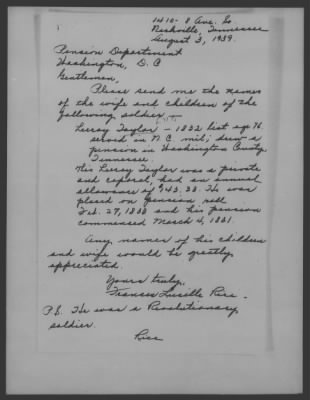 1410 - 8 Ave. So
Nashville, Tennessee
August 3, 1939.
Pension Department
Washington, D. C
Gentlemen,
Please send me the names
of the wife and children of the
following soldier -
Leroy Taylor - 1832 list age 76
served in N.C. mil; drew a
pension in Washington County
Tennessee.
This Leroy Taylor was a private
and corporal had an annual
allowance of $43.38. He was
placed on pension roll
Feb. 27, 1833 and his pension
commenced March 4, 1831.
Any names of his children
and wife would be greatly
appreciated.
Yours truly,
Frances Lucille Rice.
P.S. He was a Revolutionary
soldier.
Rice